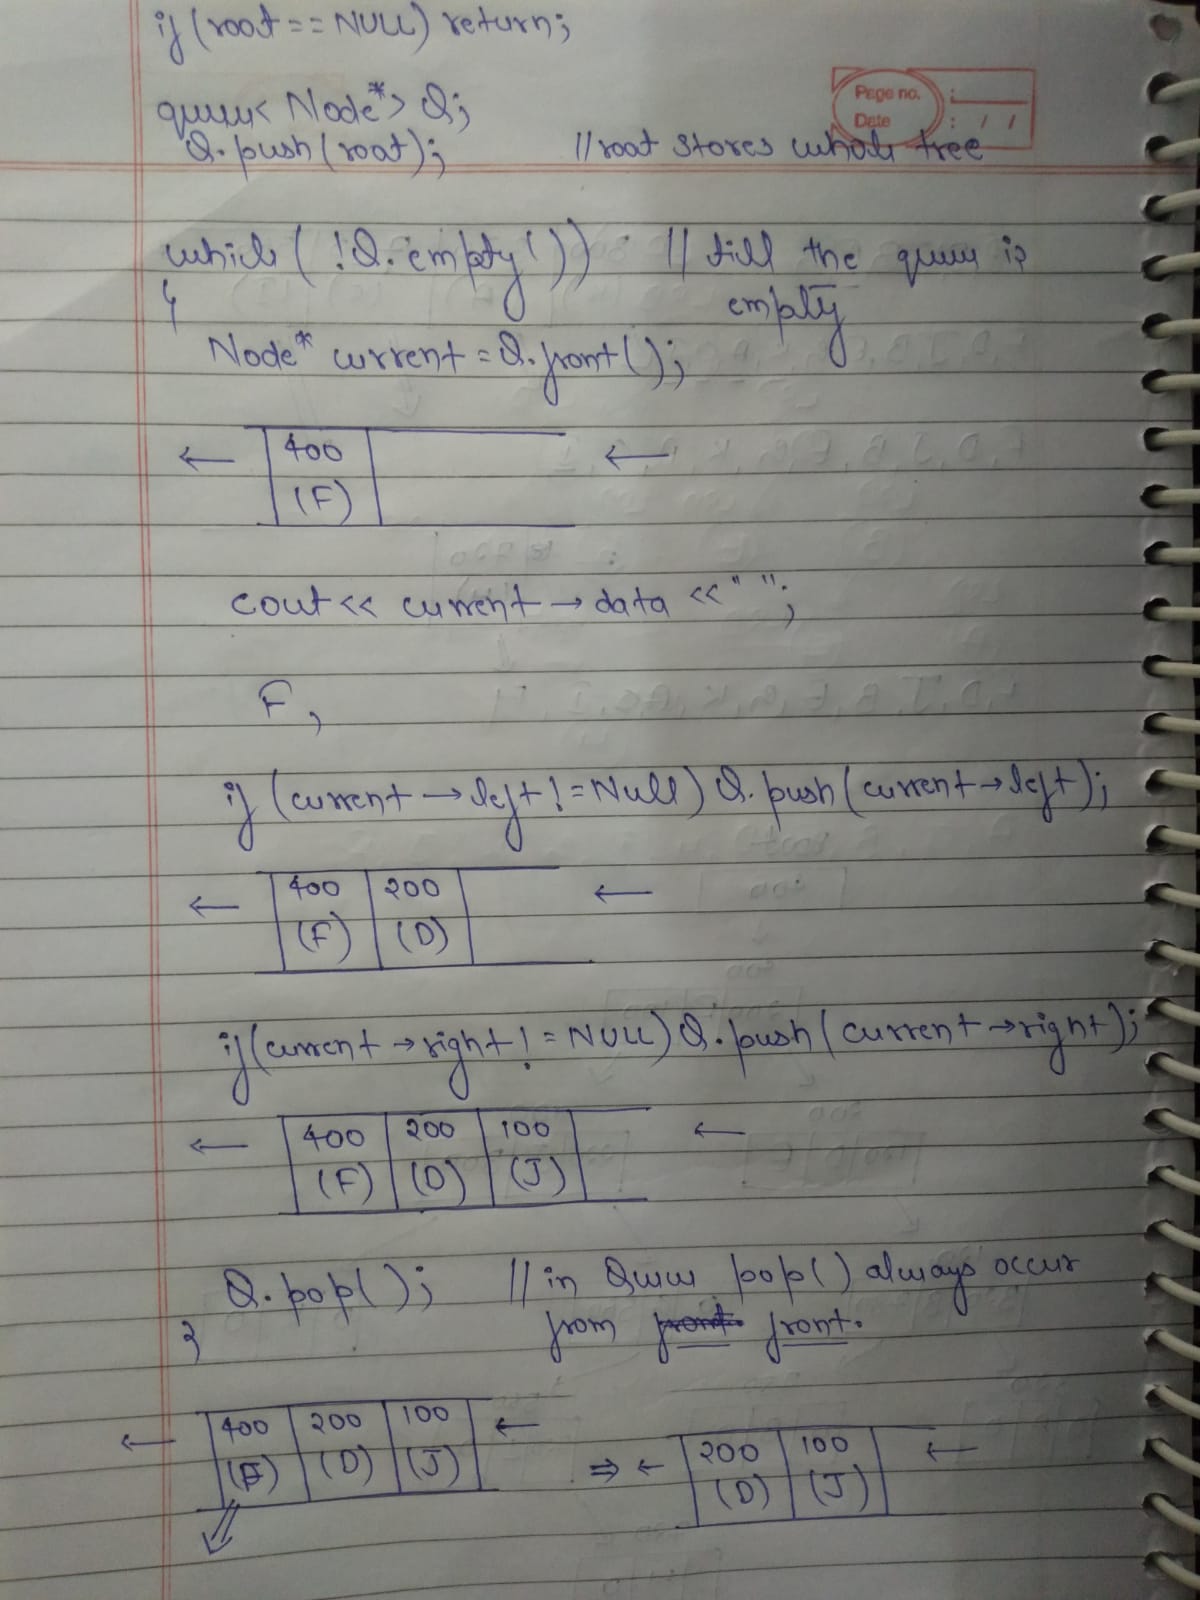 if (root == NULL) return;
Page no. :
Date : / /
queue< Node*> Q;
Q. push (root); // root stores whole tree
while ( !Q. empty ()) // till the queue is
{ empty
Node* current = Q. front ();
← 400 ←
(F)
cout << current → data << " ";
F,
if (current → left != Null) Q. push (current → left);
← 400 200 ←
(F) (D)
if (current → right != NULL) Q. push (current → right);
← 400 200 100 ←
(F) (D) (J)
Q. pop( ); // in Queue pop() always occur
} from front. front.
← 400 200 100 ← ⇒ ← 200 100 ←
(F) (D) (J) (D) (J)